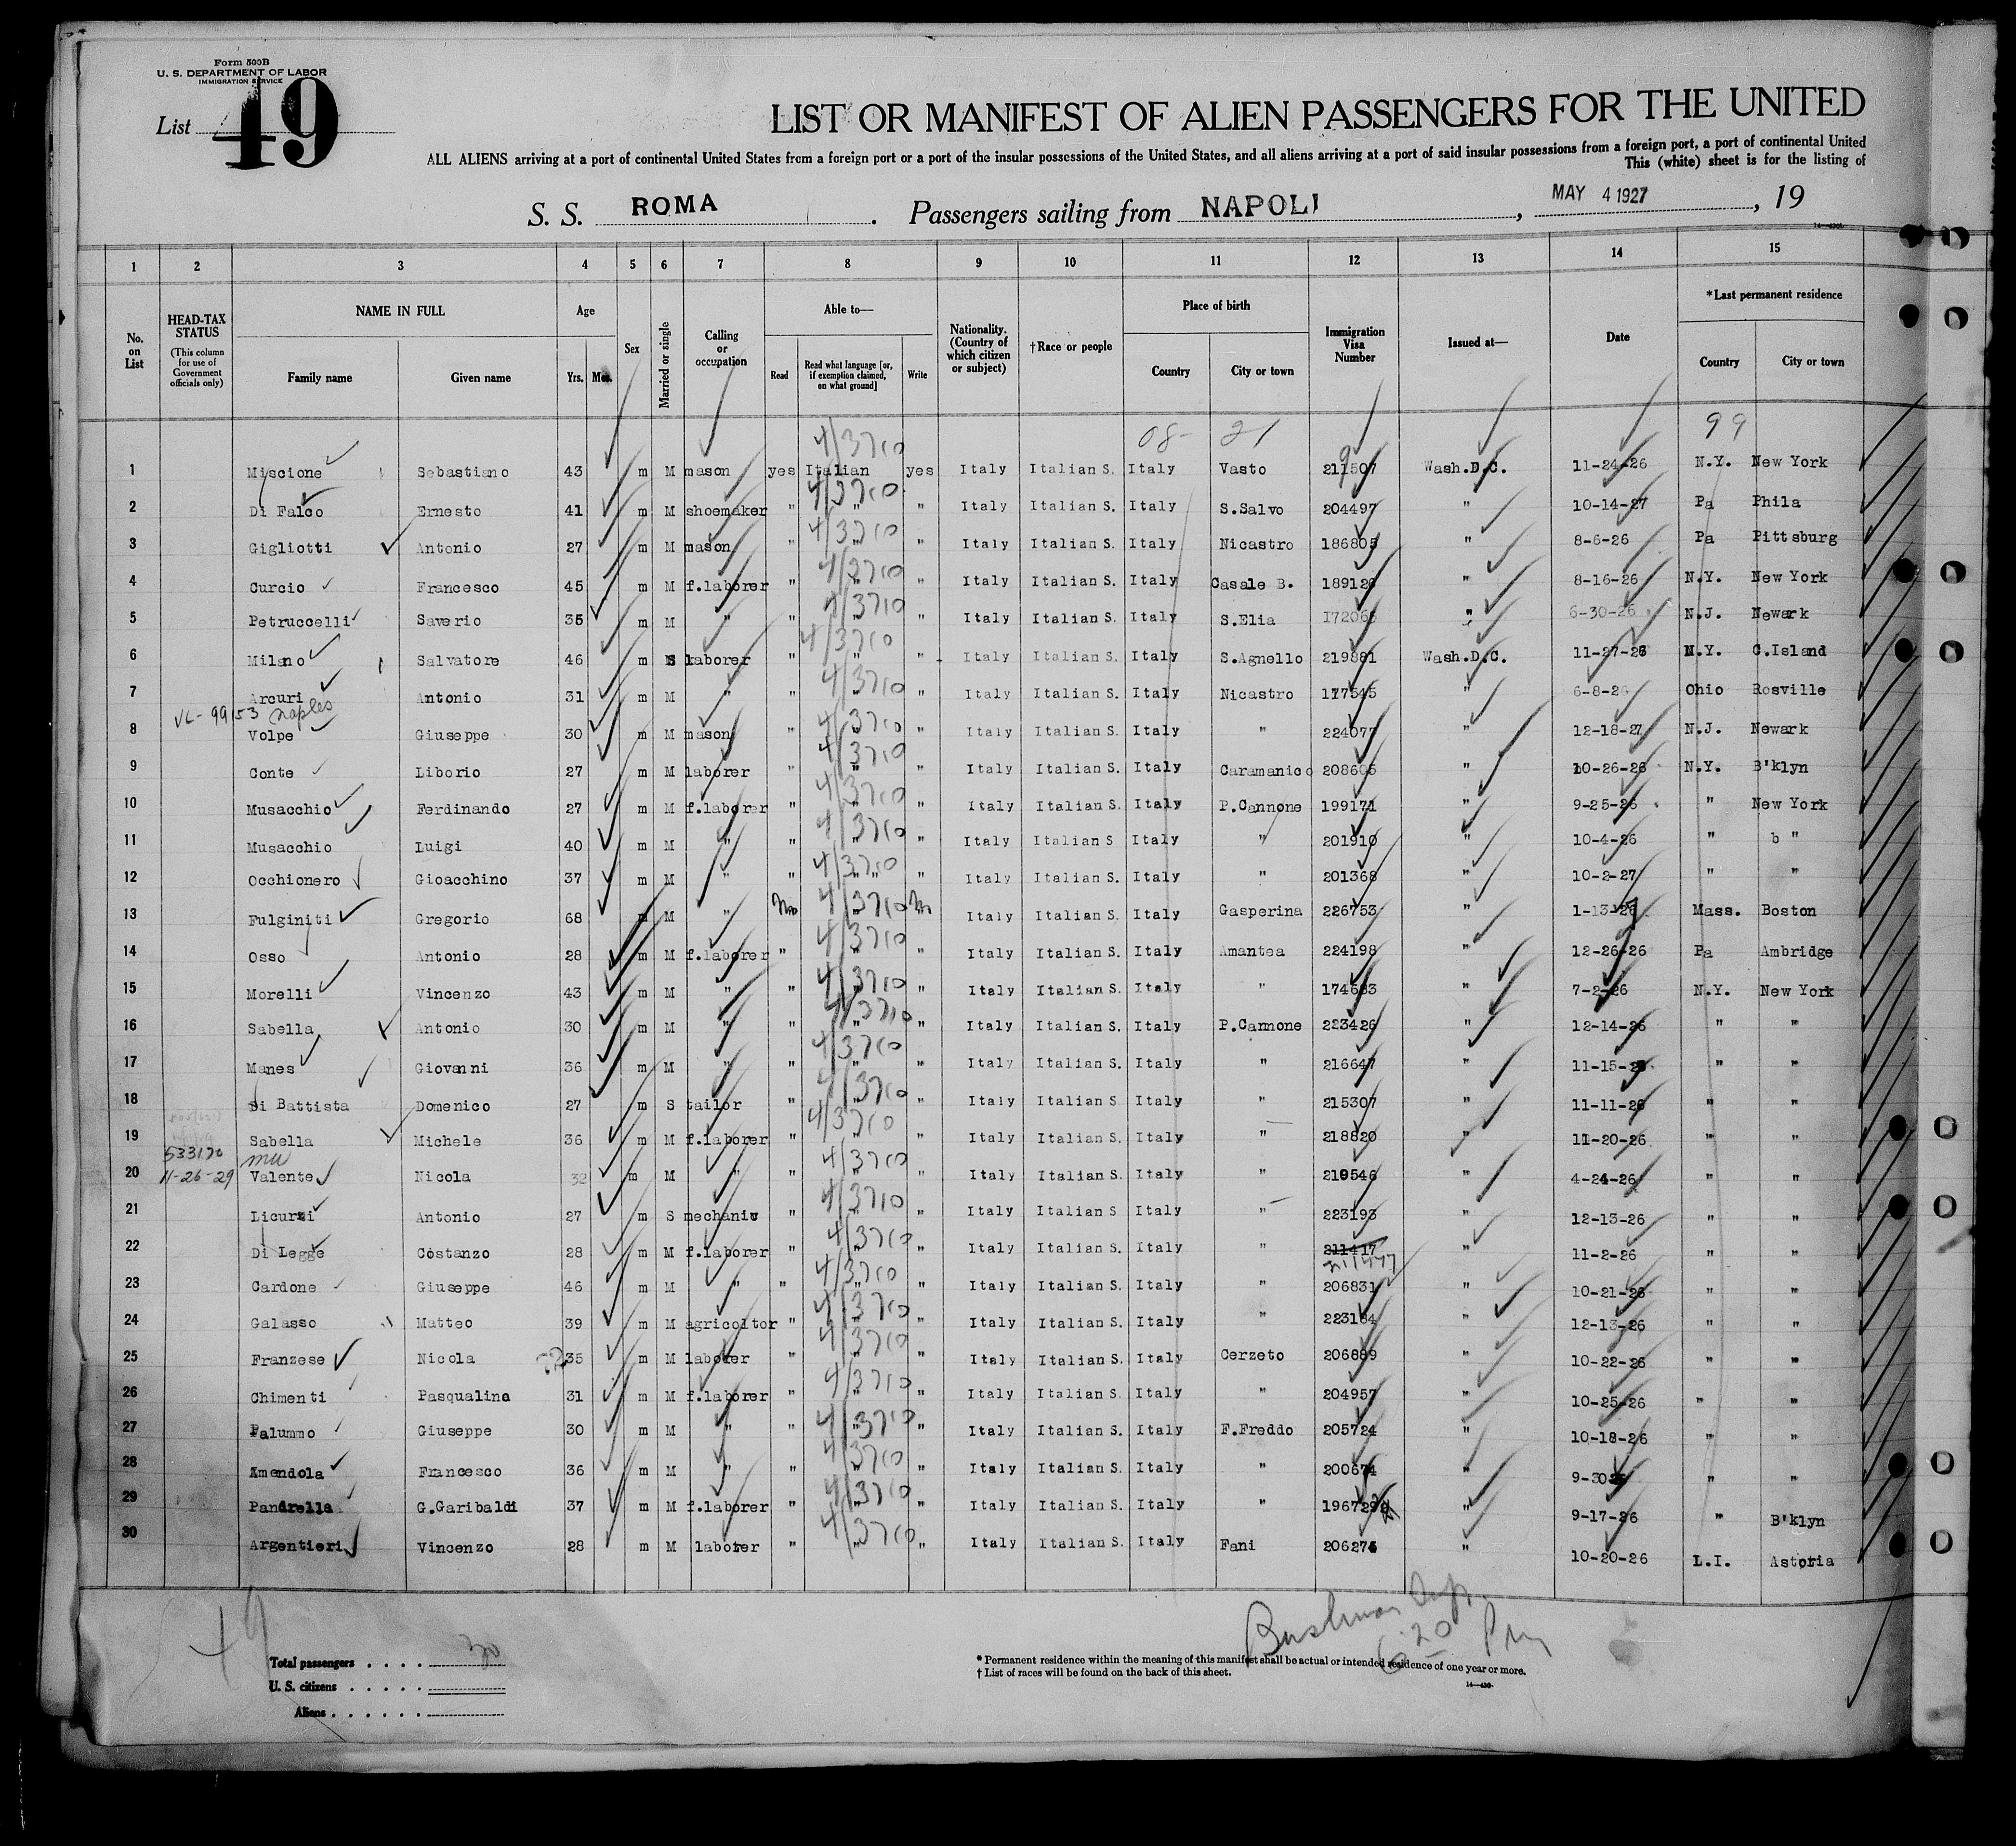 Form 500B
U. S. DEPARTMENT OF LABOR
IMMIGRATION SERVICE
List 49
LIST OR MANIFEST OF ALIEN PASSENGERS FOR THE UNITED
ALL ALIENS arriving at a port of continental United States from a foreign port or a port of the insular possessions of the United States, and all aliens arriving at a port of said insular possessions from a foreign port, a port of continental United
This (white) sheet is for the listing of
S. S. ROMA . Passengers sailing from NAPOLI , MAY 4 1927 , 19
1 2 3 4 5 6 7 8 9 10 11 12 13 14 15
No. on List
HEAD-TAX STATUS
(This column for use of Government officials only)
NAME IN FULL
Family name Given name
Age
Yrs. Mos.
Sex
Married or single
Calling or occupation
Able to—
Read
Read what language [or, if exemption claimed, on what ground]
Write
Nationality. (Country of which citizen or subject)
†Race or people
Place of birth
Country City or town
Immigration Visa Number
Issued at—
Date
*Last permanent residence
Country City or town
4/3710 08- 21 99
1 Miscione Sebastiano 43 m M mason yes Italian yes Italy Italian S. Italy Vasto Wash.D.C. 11-24-26 N.Y. New York
2 Di Falco Ernesto 41 m M shoemaker " 4/3710 " " Italy Italian S. Italy S.Salvo 204497 " 10-14-27 Pa Phila
3 Gigliotti Antonio 27 m M mason " 4/3710 " Italy Italian S. Italy Nicastro 186805 " 8-6-26 Pa Pittsburg
4 Curcio Francesco 45 m M f.laborer " 4/3710 " " Italy Italian S. Italy Casale B. 189126 " 8-16-26 N.Y. New York
5 Petruccelli Saverio 35 m M " " 4/3710 " Italy Italian S. Italy S.Elia 172068 " 6-30-26 N.J. Newark
6 Milano Salvatore 46 m S laborer " 4/3710 " Italy Italian S. Italy S.Agnello 219881 Wash.D.C. 11-27-26 N.Y. C.Island
7 Arcuri Antonio 31 m M " " 4/3710 " Italy Italian S. Italy Nicastro 177545 " 6-8-26 Ohio Rosville
VL- 99153 Naples
8 Volpe Giuseppe 30 m M mason " 4/3710 " " Italy Italian S. Italy " 224077 " 12-18-27 N.J. Newark
9 Conte Liborio 27 m M laborer " 4/3710 " Italy Italian S. Italy Caramanico 208605 " 10-26-26 N.Y. B'klyn
10 Musacchio Ferdinando 27 m M f.laborer " 4/3710 " " Italy Italian S. Italy P.Cannone 199171 " 9-25-26 " New York
11 Musacchio Luigi 40 m M " " 4/3710 " " Italy Italian S Italy " 201910 " 10-4-26 " b "
12 Occhionero Gioacchino 37 m M " " 4/3710 " " " Italy Italian S. Italy " 201368 " 10-2-27 " "
13 Fulginiti Gregorio 68 m M " No 4/3710 " No Italy Italian S. Italy Gasperina 226753 " 1-13-27 Mass. Boston
14 Osso Antonio 28 m M f.laborer " 4/3710 " " Italy Italian S. Italy Amantea 224198 " 12-26-26 Pa Ambridge
15 Morelli Vincenzo 43 m M " " 4/3710 " " Italy Italian S. Italy " 174683 " 7-2-26 N.Y. New York
16 Sabella Antonio 30 m M " " 4/3710 " Italy Italian S. Italy P.Cannone 223426 " 12-14-26 " "
17 Manes Giovanni 36 m M " " 4/3710 " " Italy Italian S. Italy " 216647 " 11-15-26 " "
18 Di Battista Domenico 27 m S tailor " 4/3710 " " Italy Italian S. Italy " 215307 " 11-11-26 " "
19 Sabella Michele 36 m M f.laborer " 4/3710 " Italy Italian S. Italy " 218820 " 11-20-26 " "
533170
11-26-29
20 Valente Nicola 32 m M " " 4/3710 " " Italy Italian S Italy " 219546 " 4-24-26 " "
21 Licursi Antonio 27 m S mechanic " 4/3710 " " Italy Italian S. Italy " 223193 " 12-13-26 " "
22 Di Legge Costanzo 28 m M f.laborer " 4/3710 " " Italy Italian S. Italy " 211417 211447 " 11-2-26 " "
23 Cardone Giuseppe 46 m M " " 4/3710 " " Italy Italian S. Italy " 206831 " 10-21-26 " "
24 Galasso Matteo 39 m M agricoltor " 4/3710 " " Italy Italian S. Italy " 223184 " 12-13-26 " "
25 Franzese Nicola 35 m M laborer " 4/3710 " " Italy Italian S. Italy Cerzeto 206889 " 10-22-26 " "
26 Chimenti Pasqualino 31 m M f.laborer " 4/3710 " " Italy Italian S. Italy " 204957 " 10-25-26 " "
27 Palummo Giuseppe 30 m M " " 4/3710 " " Italy Italian S. Italy F.Freddo 205724 " 10-18-26 " "
28 Amendola Francesco 36 m M " " 4/3710 " " Italy Italian S. Italy " 200674 " 9-30-26 " "
29 Pandrella G.Garibaldi 37 m M f.laborer " 4/3710 " " Italy Italian S. Italy " " 9-17-26 " B'klyn
30 Argentieri Vincenzo 28 m M laborer " 4/3710 " " Italy Italian S. Italy Fani 206274 " 10-20-26 L.I. Astoria
49
Total passengers . . . . 30
U. S. citizens . . . . .
Aliens . . . . . .
6:20 Pm
* Permanent residence within the meaning of this manifest shall be actual or intended residence of one year or more.
† List of races will be found on the back of this sheet.
14—430